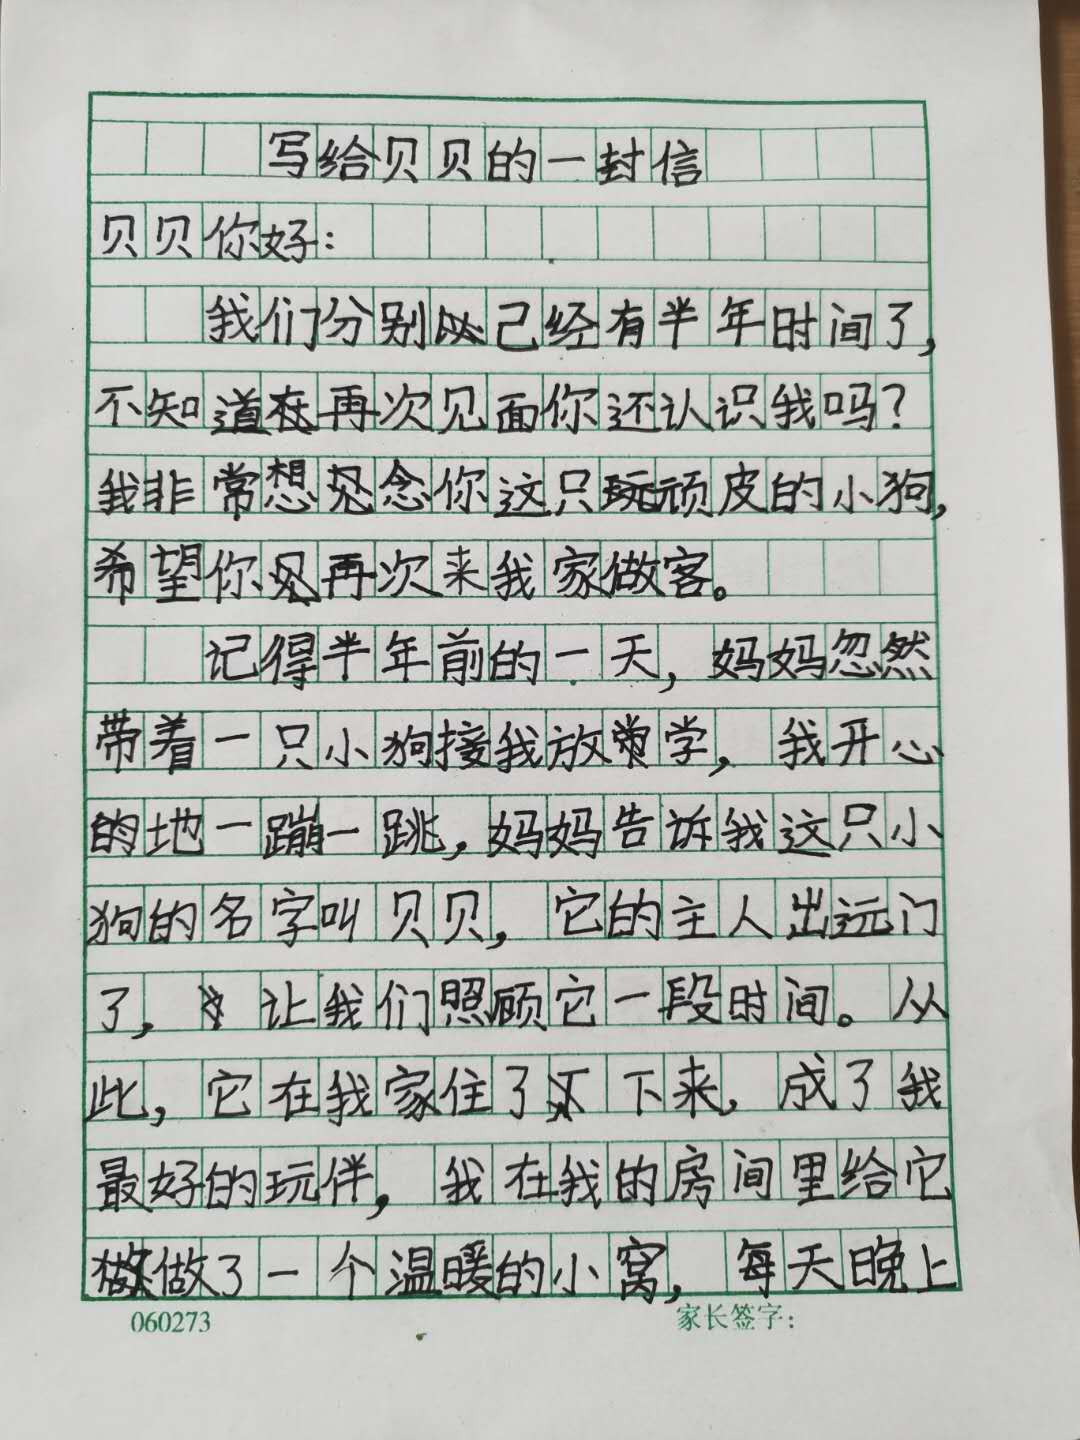 写给贝贝的一封信
贝贝你好：
我们分别已经有半年时间了，
不知道在再次见面你还认识我吗？
我非常想念你这只顽皮的小狗，
希望你再次来我家做客。
记得半年前的一天，妈妈忽然
带着一只小狗接我放学，我开心
的地一蹦一跳，妈妈告诉我这只小
狗的名字叫贝贝，它的主人出远门
了，让我们照顾它一段时间。从
此，它在我家住了下来，成了我
最好的玩伴，我在我的房间里给它
做了一个温暖的小窝，每天晚上
060273
家长签字：